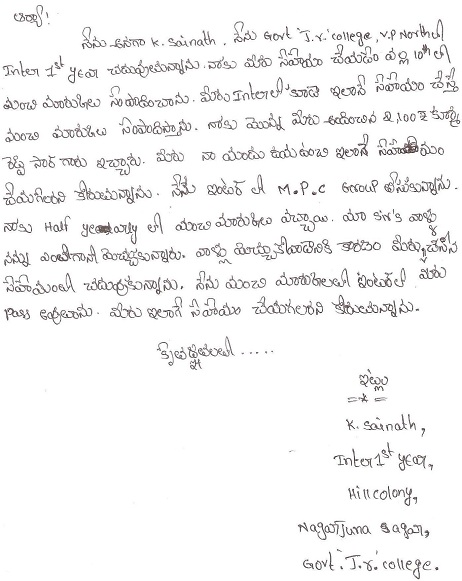 ఆర్యా!
నేను అనగా K. Sainath, నేను Govt "J.r." college, V.P North లో
Inter 1st year చదువుతున్నాను. నాకు మీరు సహాయం చేయడం వల్ల 10th లో
మంచి మార్కులు సంపాదించాను. మీరు Inter లో కూడా ఇలాగే సహాయం చేస్తే
మంచి మార్కులు సంపాదిస్తాను. నాకు మొన్న మీరు పంపించిన 2,100 ₹
రెడ్డి సార్ గారు ఇచ్చారు. మీరు నా యందు దయవుంచి ఇలాగే సహాయం
చేయగలరని కోరుచున్నాను. నేను ఇంటర్ లో M.P.C Group తీసుకున్నాను.
నాకు Half yearly లో మంచి మార్కులు వచ్చాయి. మా Sir's వాళ్ళు
నన్ను ఎంతోగానో మెచ్చుకున్నారు. వాళ్ళు మెచ్చుకోవడానికి కారణం మీరు చేసిన
సహాయంతో చదువుకున్నాను. నేను మంచి మార్కులతో ఇంటర్ లో
Pass అవుతాను. మీరు ఇలాగే సహాయం చేయగలరని కోరుచున్నాను.
కృతజ్ఞతలతో .....
ఇట్లు
=*=
K. Sainath,
Inter 1st year,
Hill colony,
Nagarjuna Sagar,
Govt. "J.r." college.